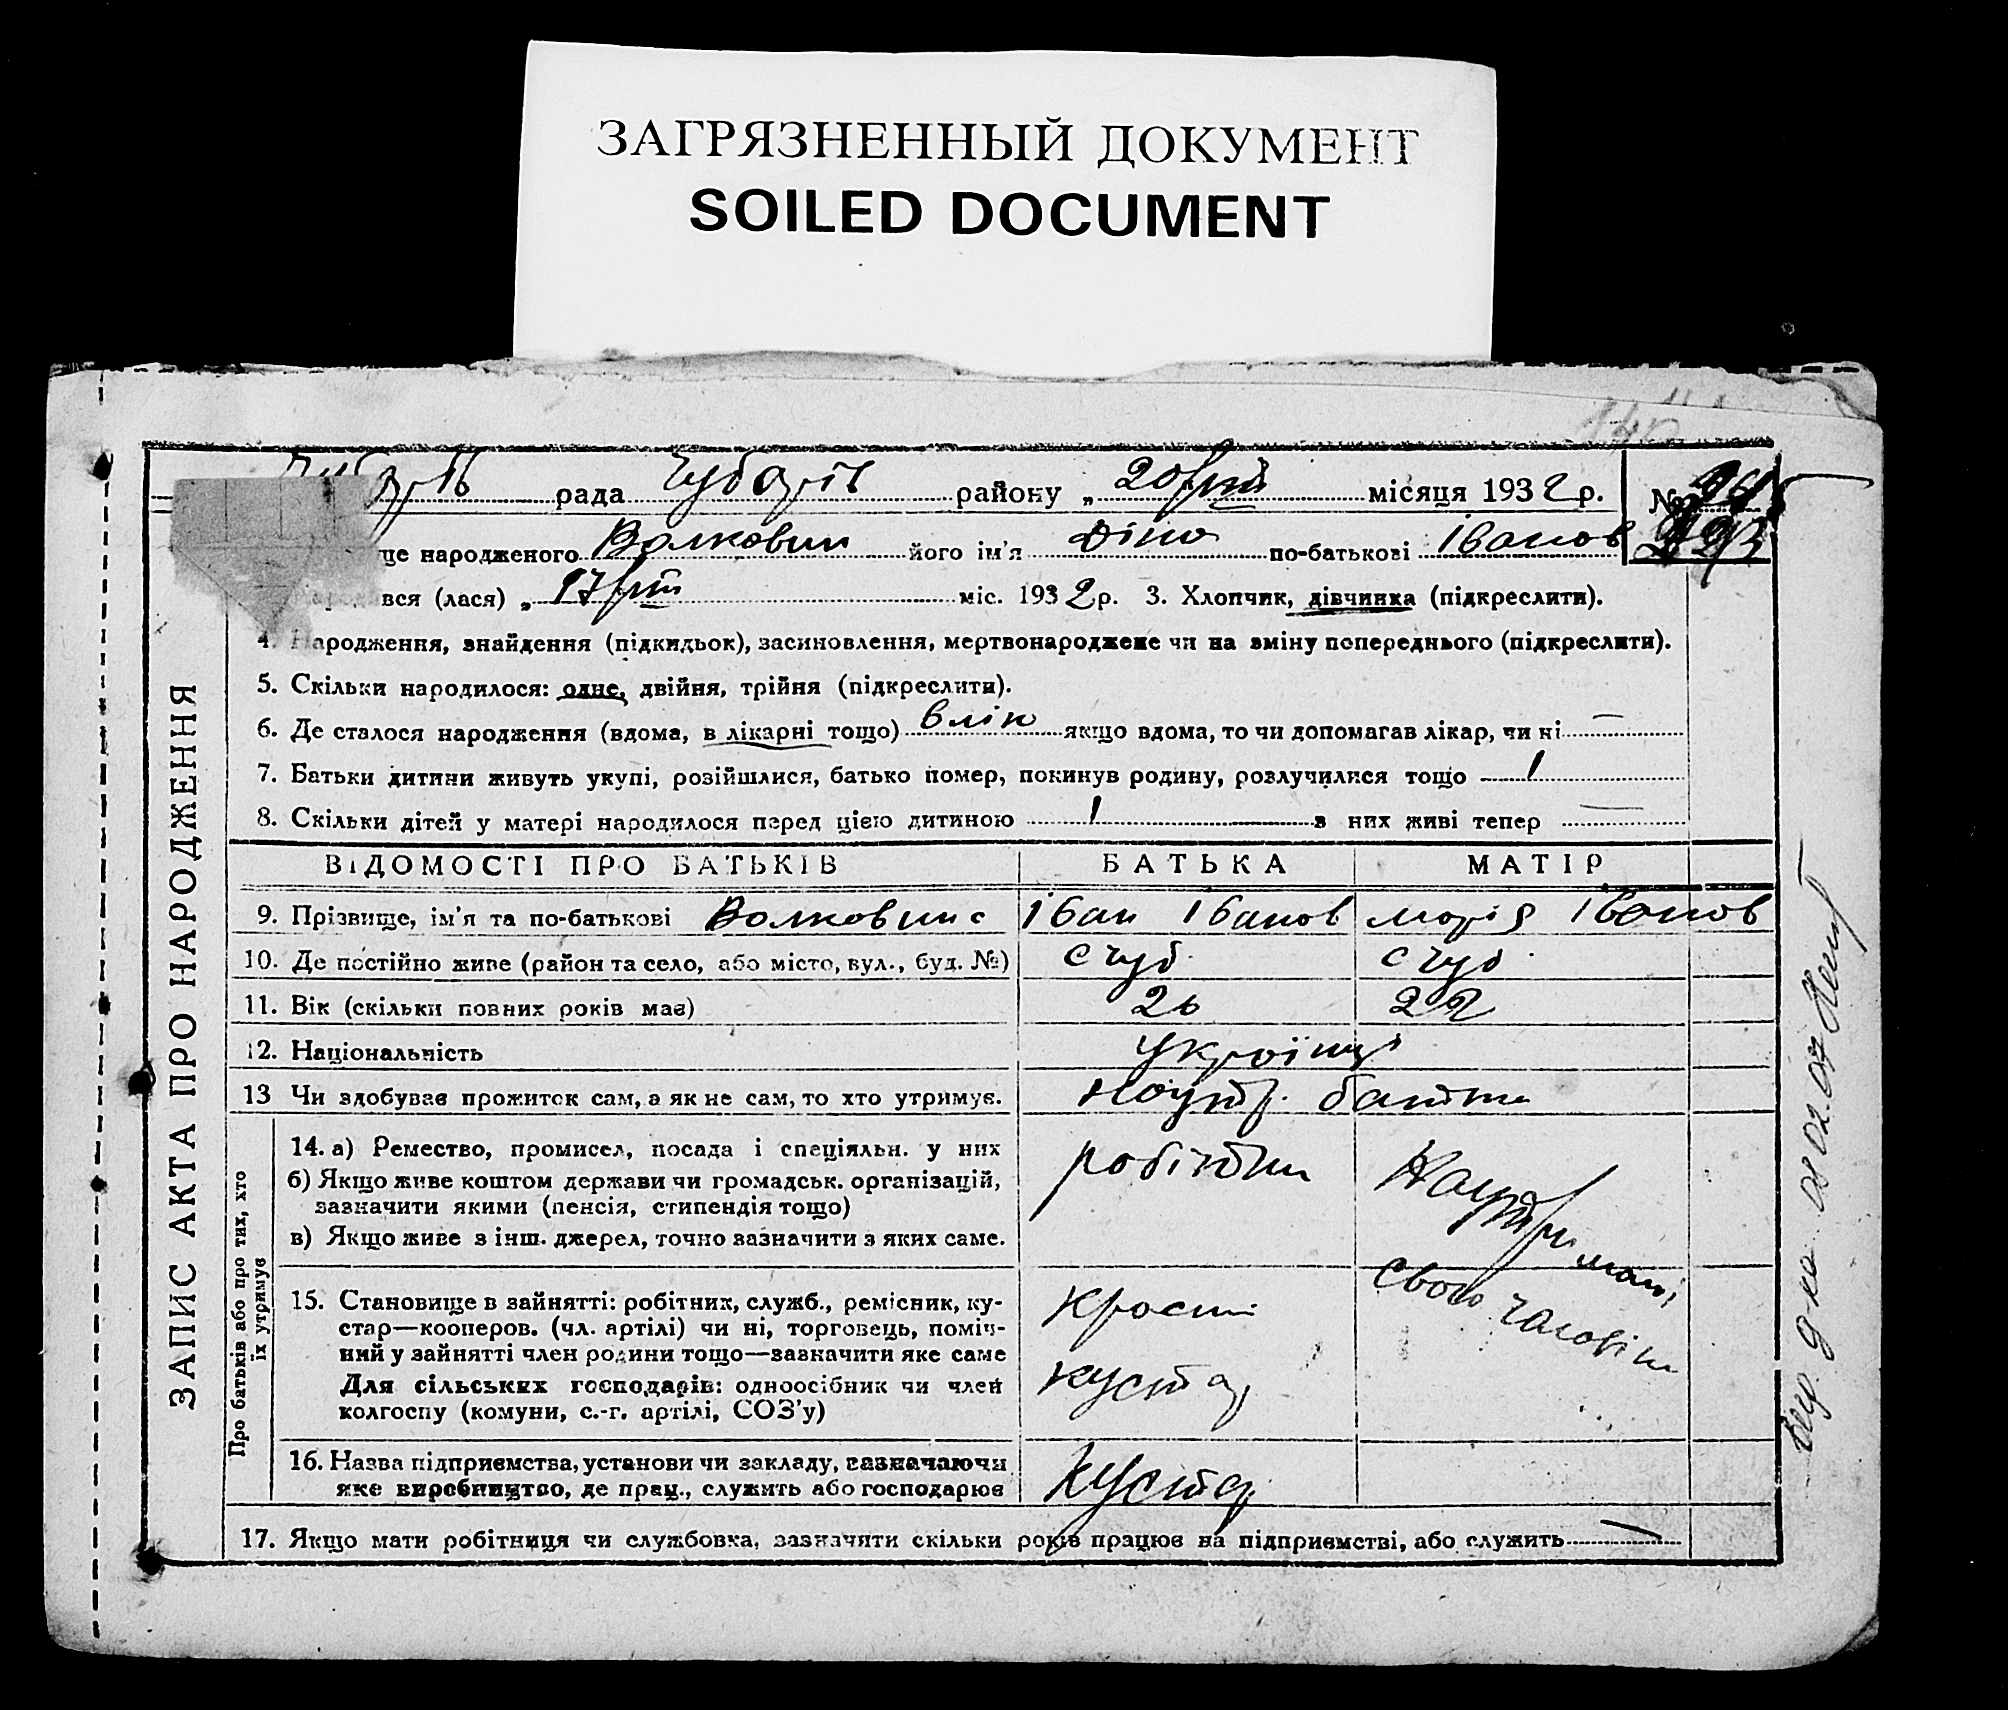 ЗАГРЯЗНЕННЫЙ ДОКУМЕНТ
SOILED DOCUMENT
рада Чубарів району „ 20 місяця 1932 р. №
ще народженого Волковин його ім'я Діна по-батькові Іванов
вся (лася) „ 17 міс. 1932 р. 3. Хлопчик, дівчинка (підкреслити).
4. Народження, знайдення (підкидьок), засиновлення, мертвонароджене чи на зміну попереднього (підкреслити).
5. Скільки народилося: одне, двійня, трійня (підкреслити).
6. Де сталося народження (вдома, в лікарні тощо) в лік якщо вдома, то чи допомагав лікар, чи ні —
7. Батьки дитини живуть укупі, розійшлися, батько помер, покинув родину, розлучилися тощо 1
8. Скільки дітей у матері народилося перед цією дитиною 1 з них живі тепер —
ВІДОМОСТІ ПРО БАТЬКІВ БАТЬКА МАТІР
9. Прізвище, ім'я та по-батькові Волковин Іван Іванов Марія Іванов
10. Де постійно живе (район та село, або місто, вул., буд. №) с Чуб. с Чуб.
11. Вік (скільки повних років має) 26 22
12. Національність україн
13 Чи здобував прожиток сам, а як не сам, то хто утримує.
14. а) Ремество, промисел, посада і спеціяльн. у них
б) Якщо живе коштом держави чи громадськ. організацій,
зазначити якими (пенсія, стипендія тощо)
в) Якщо живе з інш. джерел, точно зазначити з яких саме.
15. Становище в зайнятті: робітник, служб., ремісник, ку-
стар—кооперов. (чл. артілі) чи ні, торговець, поміч-
ний у зайнятті член родини тощо—зазначити яке саме
Для сільських господарів: одноосібник чи член
колгоспу (комуни, с.-г. артілі, СОЗ'у)
кустар
16. Назва підприємства, установи чи закладу, зазначаючи
яке виробництво, де прац., служить або господарює
Кустар
17. Якщо мати робітниця чи службовка, зазначити скільки років працює на підприємстві, або служить —
ЗАПИС АКТА ПРО НАРОДЖЕННЯ
Про батьків або про тих, хто
їх утримує
08.02.07